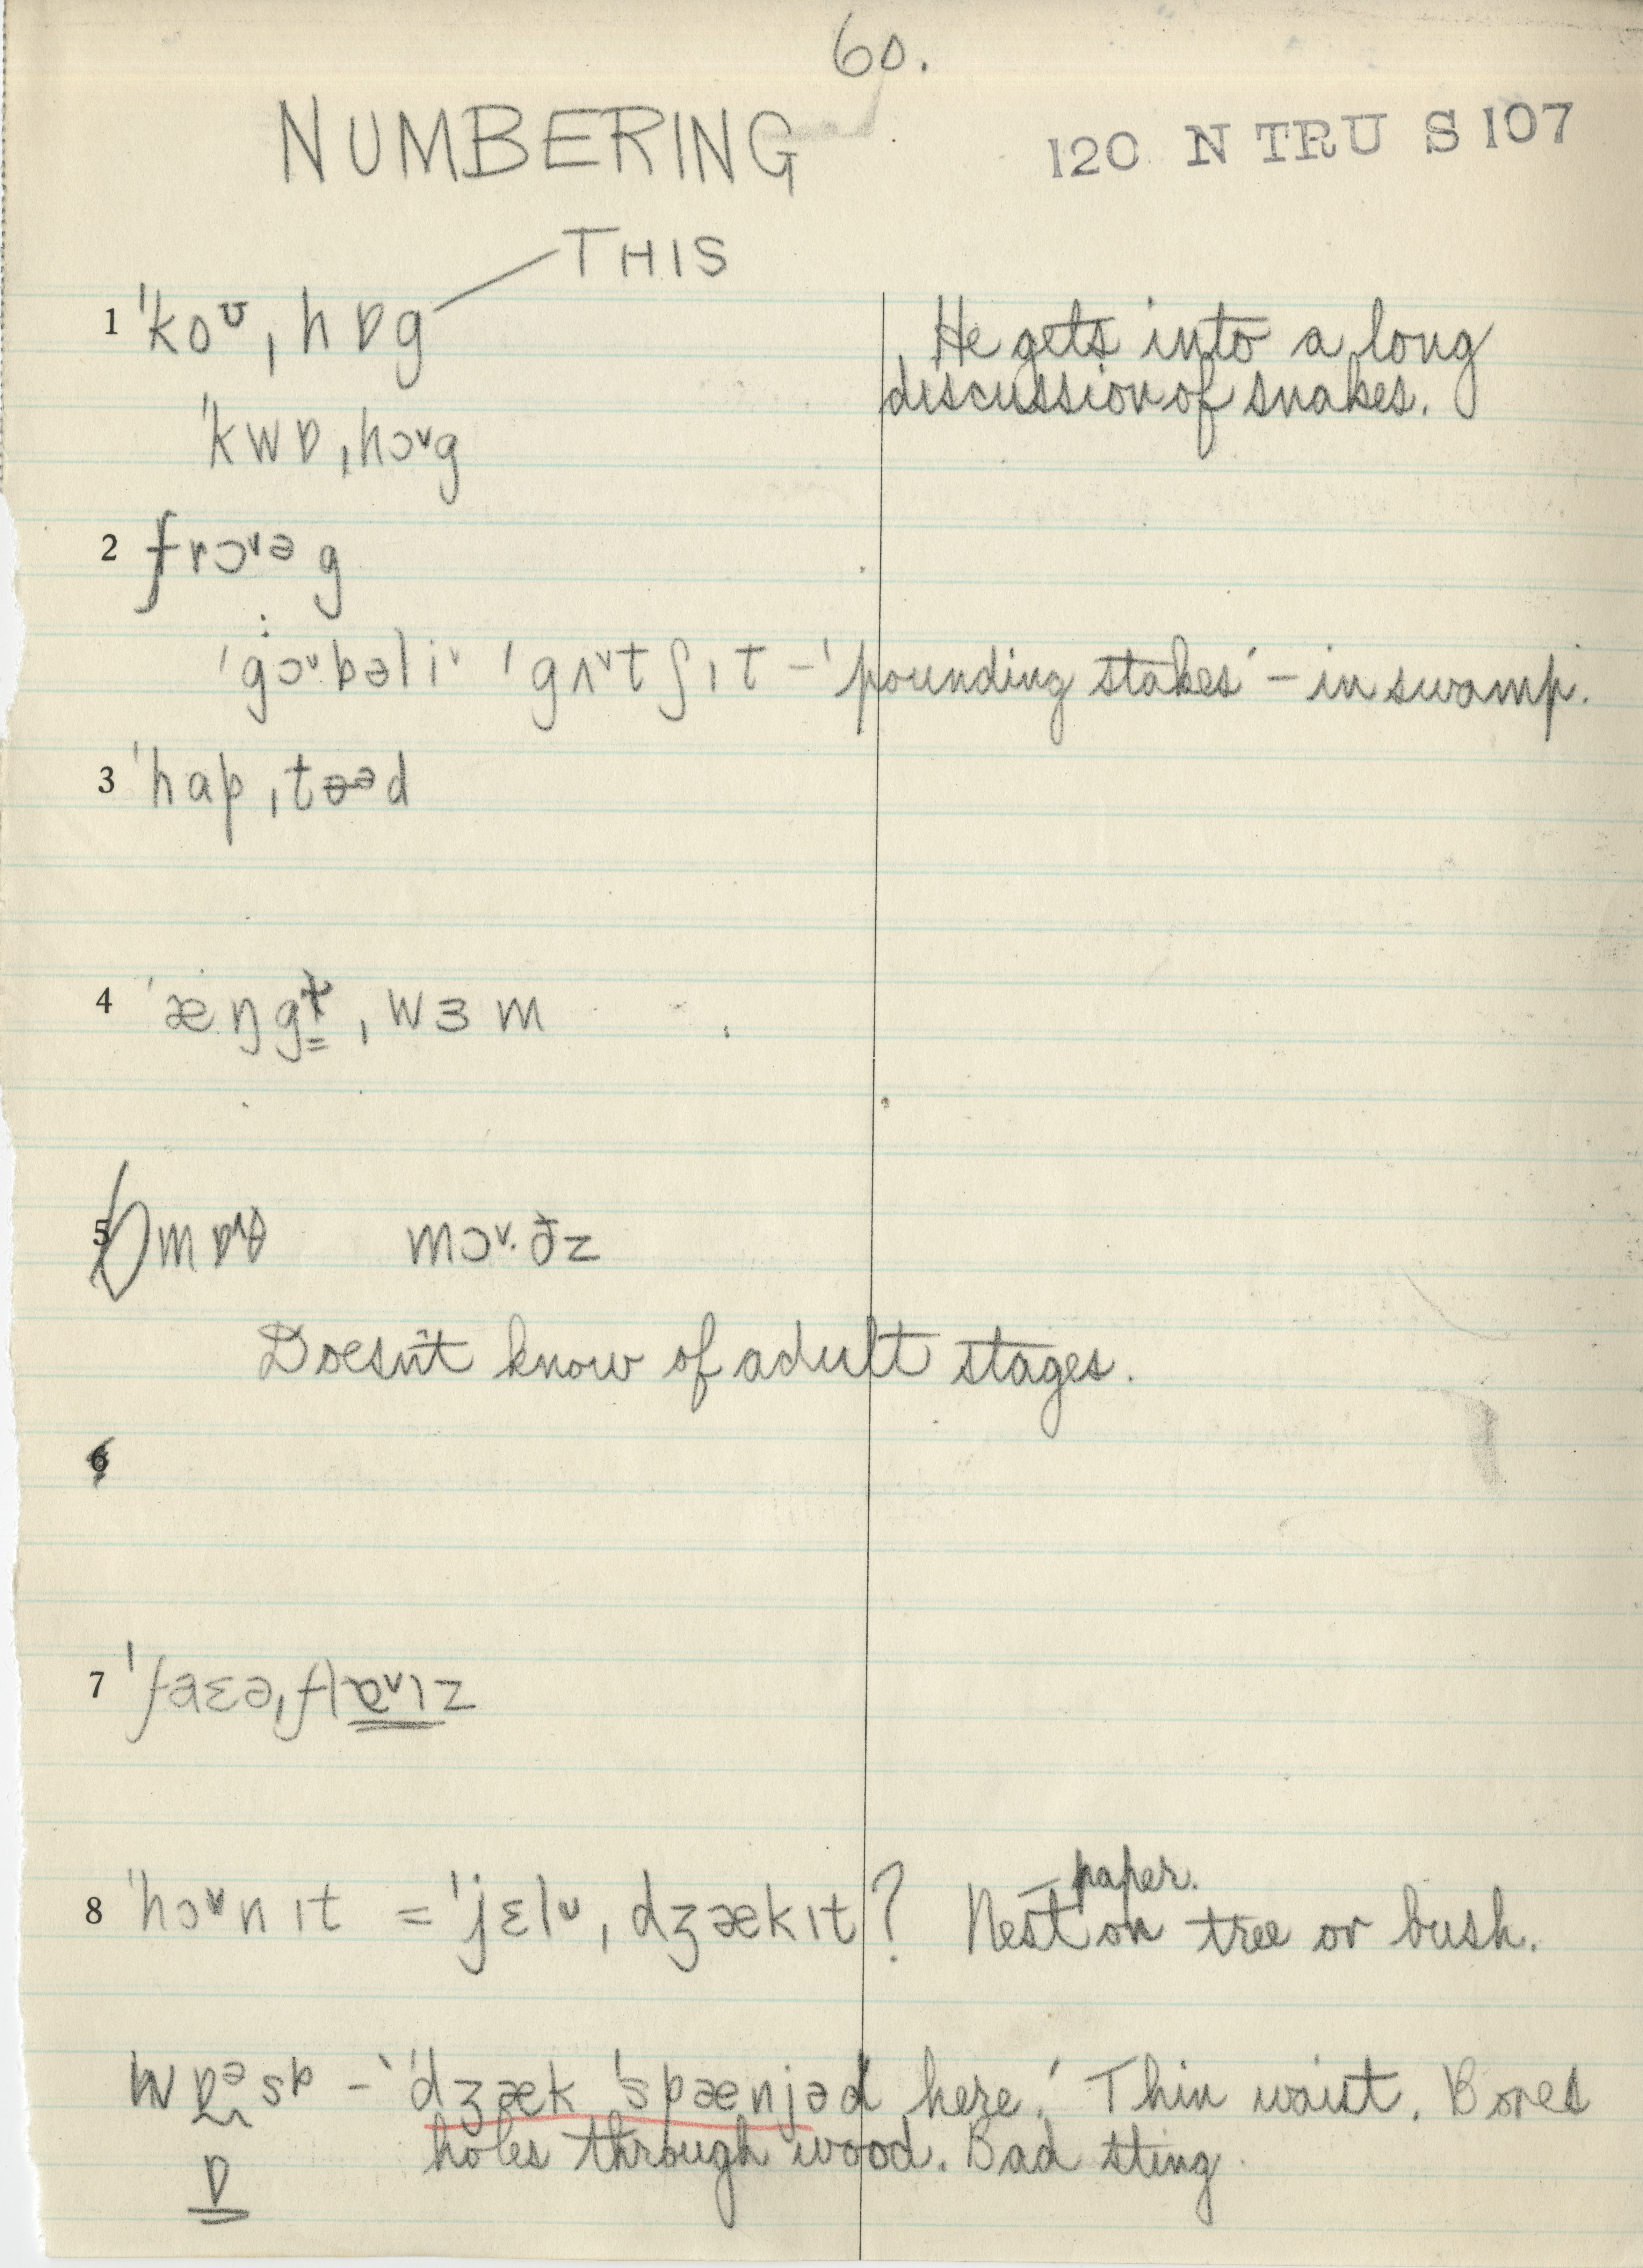 60.
NUMBERING
120 N TRU S 107
THIS
1 ˈkoᶷ ˌhɒg
He gets into a long
discussion of snakes.
ˈkwɒ ˌhɔᵛg
2 frɔᵛəg
ˈgɔᵛbəliᵛ ˈgʌᵛtʃɪt – 'pounding stakes' – in swamp.
3 ˈhap ˌtəəd
4 ˈæŋg ˌwɜm
5 mɔᵛ·ðz
Doesn't know of adult stages.
6
7
8 ˈhɔᵛnɪt = ˈjɛlᶷ ˌdʒækɪt? Nest on tree or bush.
paper.
– 'ˈdʒæk ˈspænjəd here.' Thin waist. Bores
holes through wood. Bad sting.
ɒ